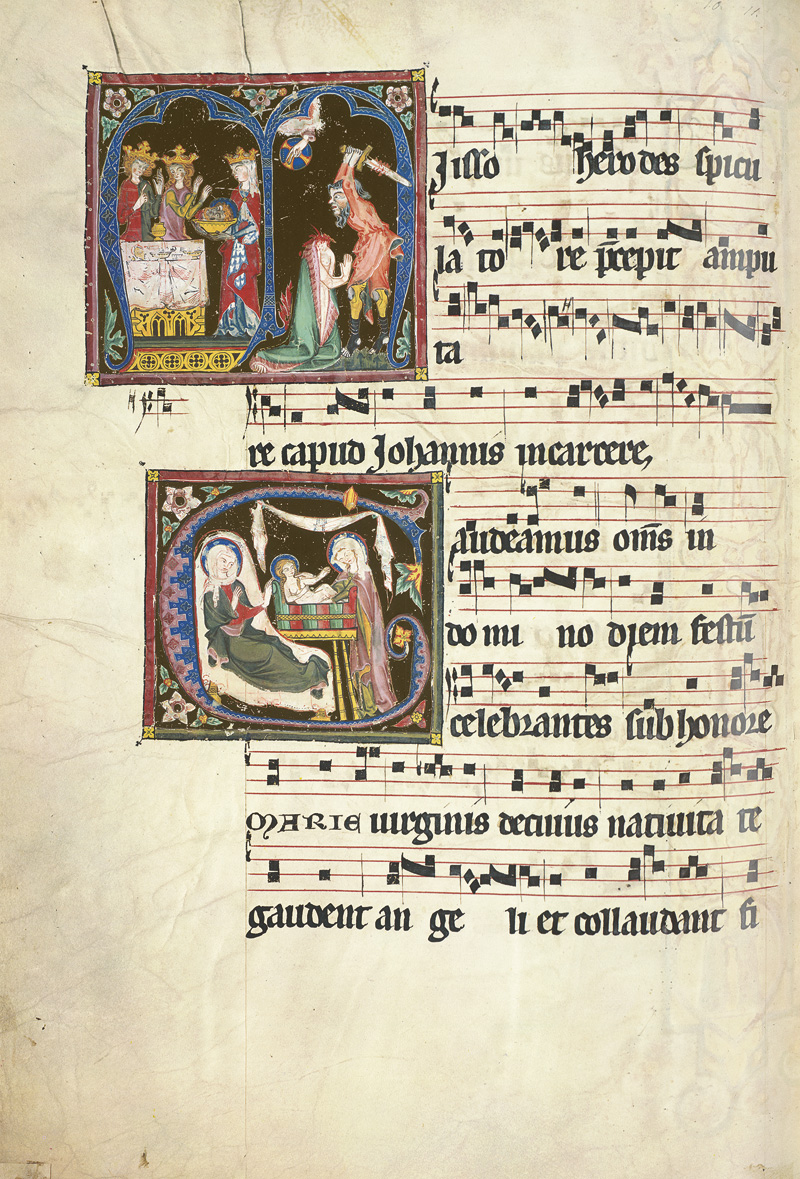 Misso herodes spicu
la to re p̄cepit ampu
ta
re capud Johannis incarcere,
Gaudeamus om̄s in
do mi no diem festū
celebrantes sub honore
MARIE uirginis de cuius natiuita te
gaudent an ge li et collaudant fi